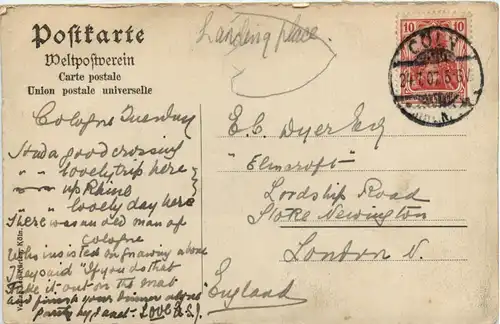 Postkarte
Weltpostverein
Carte postale
Union postale universelle
Landing place.
10
CÖLN
Cologne Tuesday
Had a good crossing
" " lovely trip here
" up Rhine
" lovely day here
There was an old man of
Cologne
Who insisted on gnawing a bone
They said "If you do that
Take it out on the mat
and finish your dinner alone"
Love
E.C. Dyer Esq
"Elmcroft"
Lordship Road
Stoke Newington
London N.
England